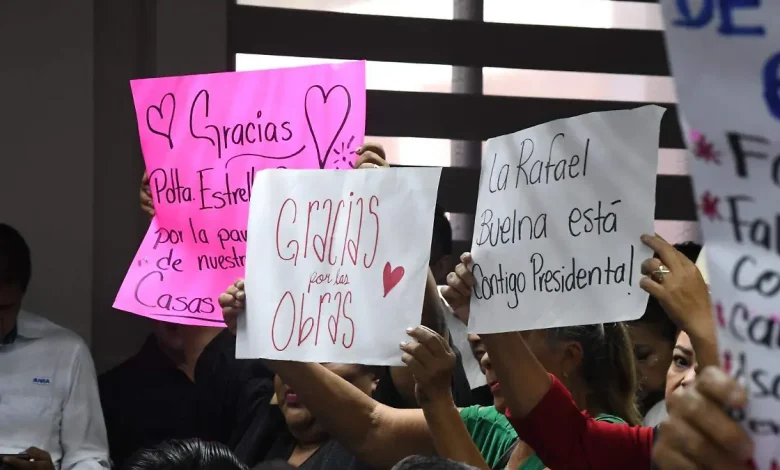 Gracias
Pdta. Estrell
por la pav
de nuestr
Casas
Gracias
por las
Obras
La Rafael
Buelna está
Contigo Presidenta!
De